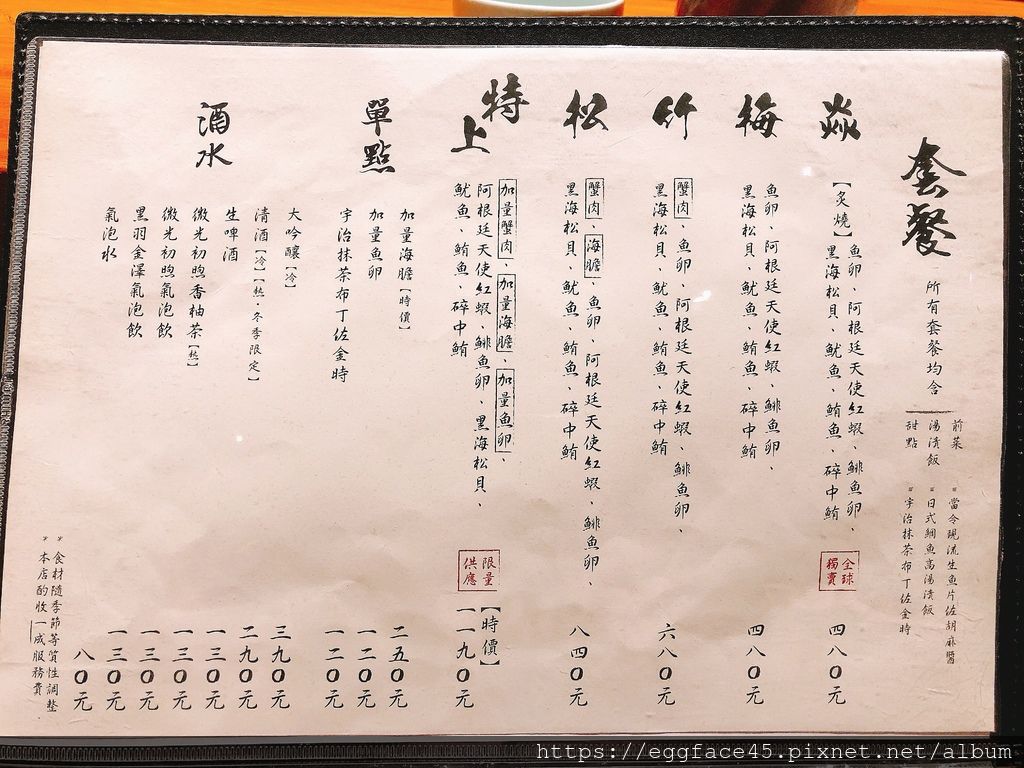 套餐
所有套餐均含
前菜 = 當令現流生魚片佐胡麻醬
湯漬飯 = 日式鯛魚高湯漬飯
甜點 = 宇治抹茶布丁佐金時
焱
【炙燒】魚卵、阿根廷天使紅蝦、鯡魚卵、
黑海松貝、魷魚、鮪魚、碎中鮪
全球
獨賣
四八0元
梅
魚卵、阿根廷天使紅蝦、鯡魚卵、
黑海松貝、魷魚、鮪魚、碎中鮪
四八0元
竹
蟹肉、魚卵、阿根廷天使紅蝦、鯡魚卵、
黑海松貝、魷魚、鮪魚、碎中鮪
六八0元
松
蟹肉、海膽、魚卵、阿根廷天使紅蝦、鯡魚卵、
黑海松貝、魷魚、鮪魚、碎中鮪
八四0元
特上
加量蟹肉、加量海膽、加量魚卵、
阿根廷天使紅蝦、鯡魚卵、黑海松貝、
魷魚、鮪魚、碎中鮪
限量
供應
【時價】
一一九0元
單點
加量海膽【時價】 二五0元
加量魚卵 一二0元
宇治抹茶布丁佐金時 一二0元
酒水
大吟釀【冷】 三九0元
清酒【冷】【熱.冬季限定】 二九0元
生啤酒 一三0元
微光初煦香柚茶【熱】 一三0元
微光初煦氣泡飲 一三0元
黑羽金澤氣泡飲 一三0元
氣泡水 八0元
*食材隨季節等質性調整
*本店酌收一成服務費
https://eggface45.pixnet.net/album